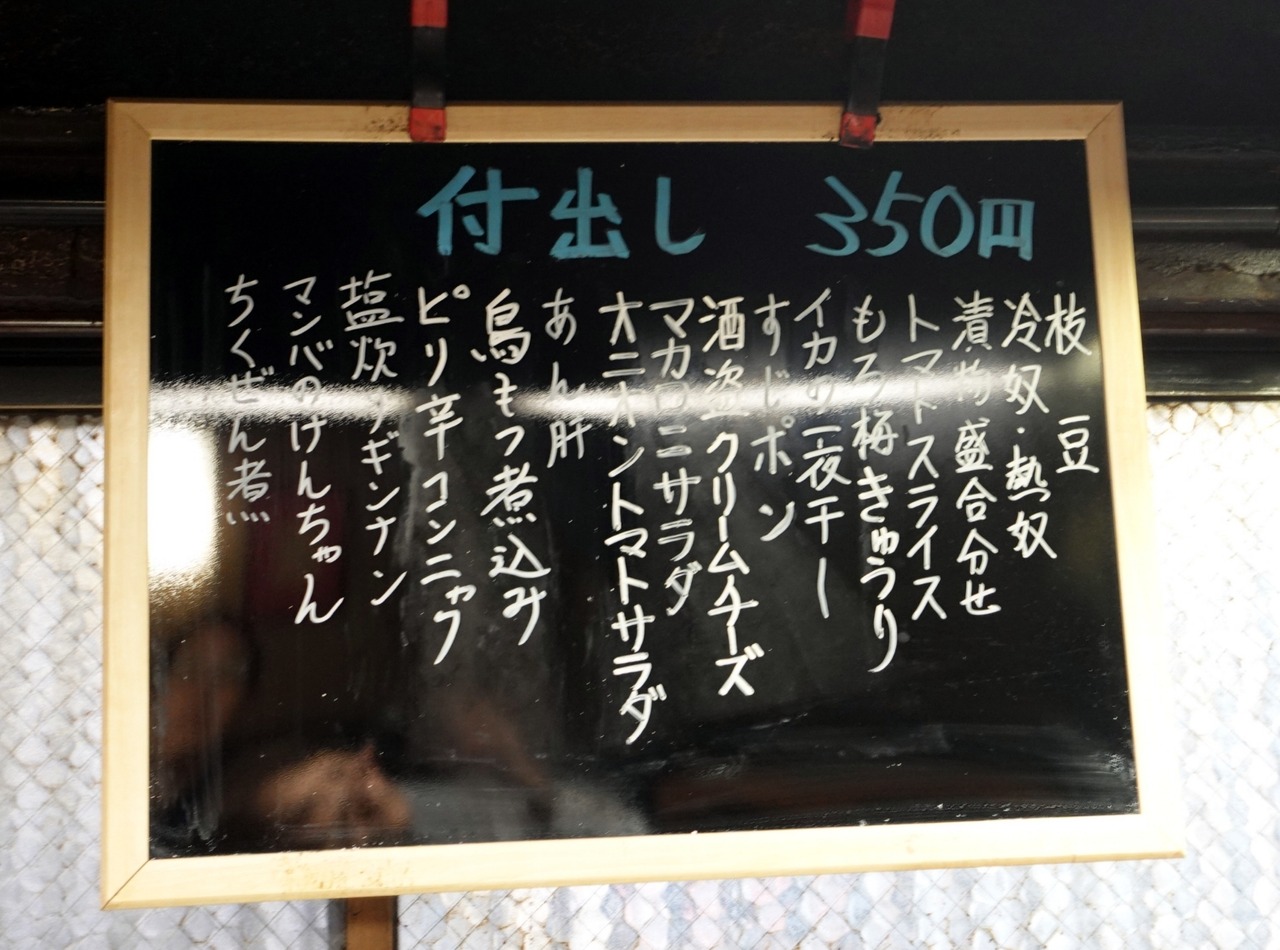 付出し 350円
枝豆
冷奴・熱奴
漬物盛合分せ
トマトスライス
もろ梅きゅうり
イカの一夜干ー
すじポン
酒盗クリームチーズ
マカロニサラダ
オニオントマトサラダ
あん肝
鳥もつ煮込み
ピリ辛コンニャク
塩炊きギンナン
マンバのけんちゃん
ちくぜん煮